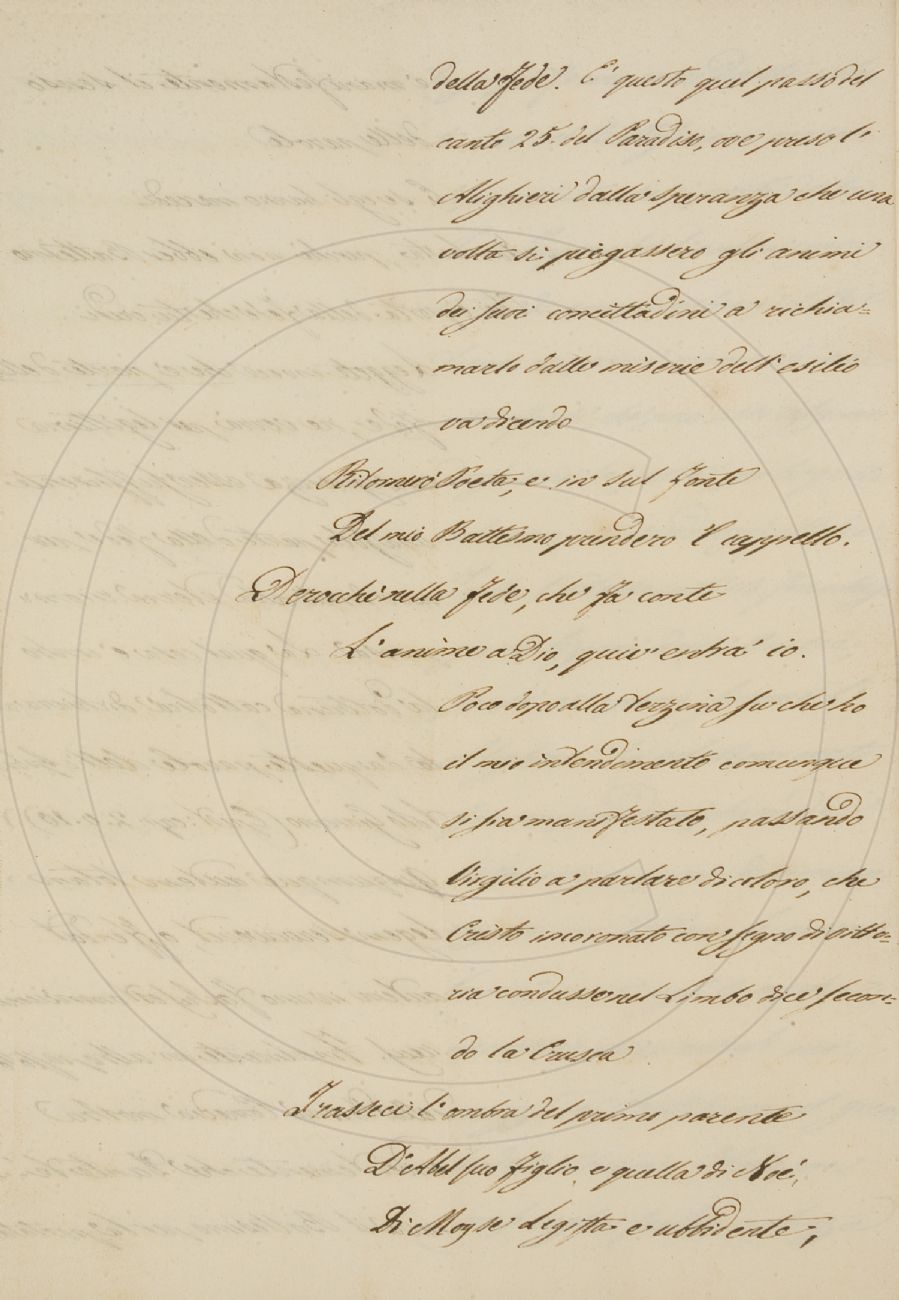 della fede. E' questo quel passo del
canto 25. del Paradiso, ove preso l'
Alighieri dalla speranza che una
volta si piegassero gli animi
dei suoi concittadini a richia=
marlo dalle miserie dell' esilio
va dicendo
Ritornerò Poeta, e in sul fonte
Del mio Battesmo prenderò 'l cappello.
Perocchè nella fede, che fa conte
L' anime a Dio, quiv' entra' io.
Poco dopo alla terzina su che ho
il mio intendimento comunque
si sia manifestato, passando
Virgilio a parlare di coloro, che
Cristo incoronato con segno di vitto=
ria condusse nel Limbo dice secon=
do la Crusca
Trasseci l' ombra del primo parente
D' Abel suo figlio, e quella di Noé,
Di Moyse Legista e ubbidente,